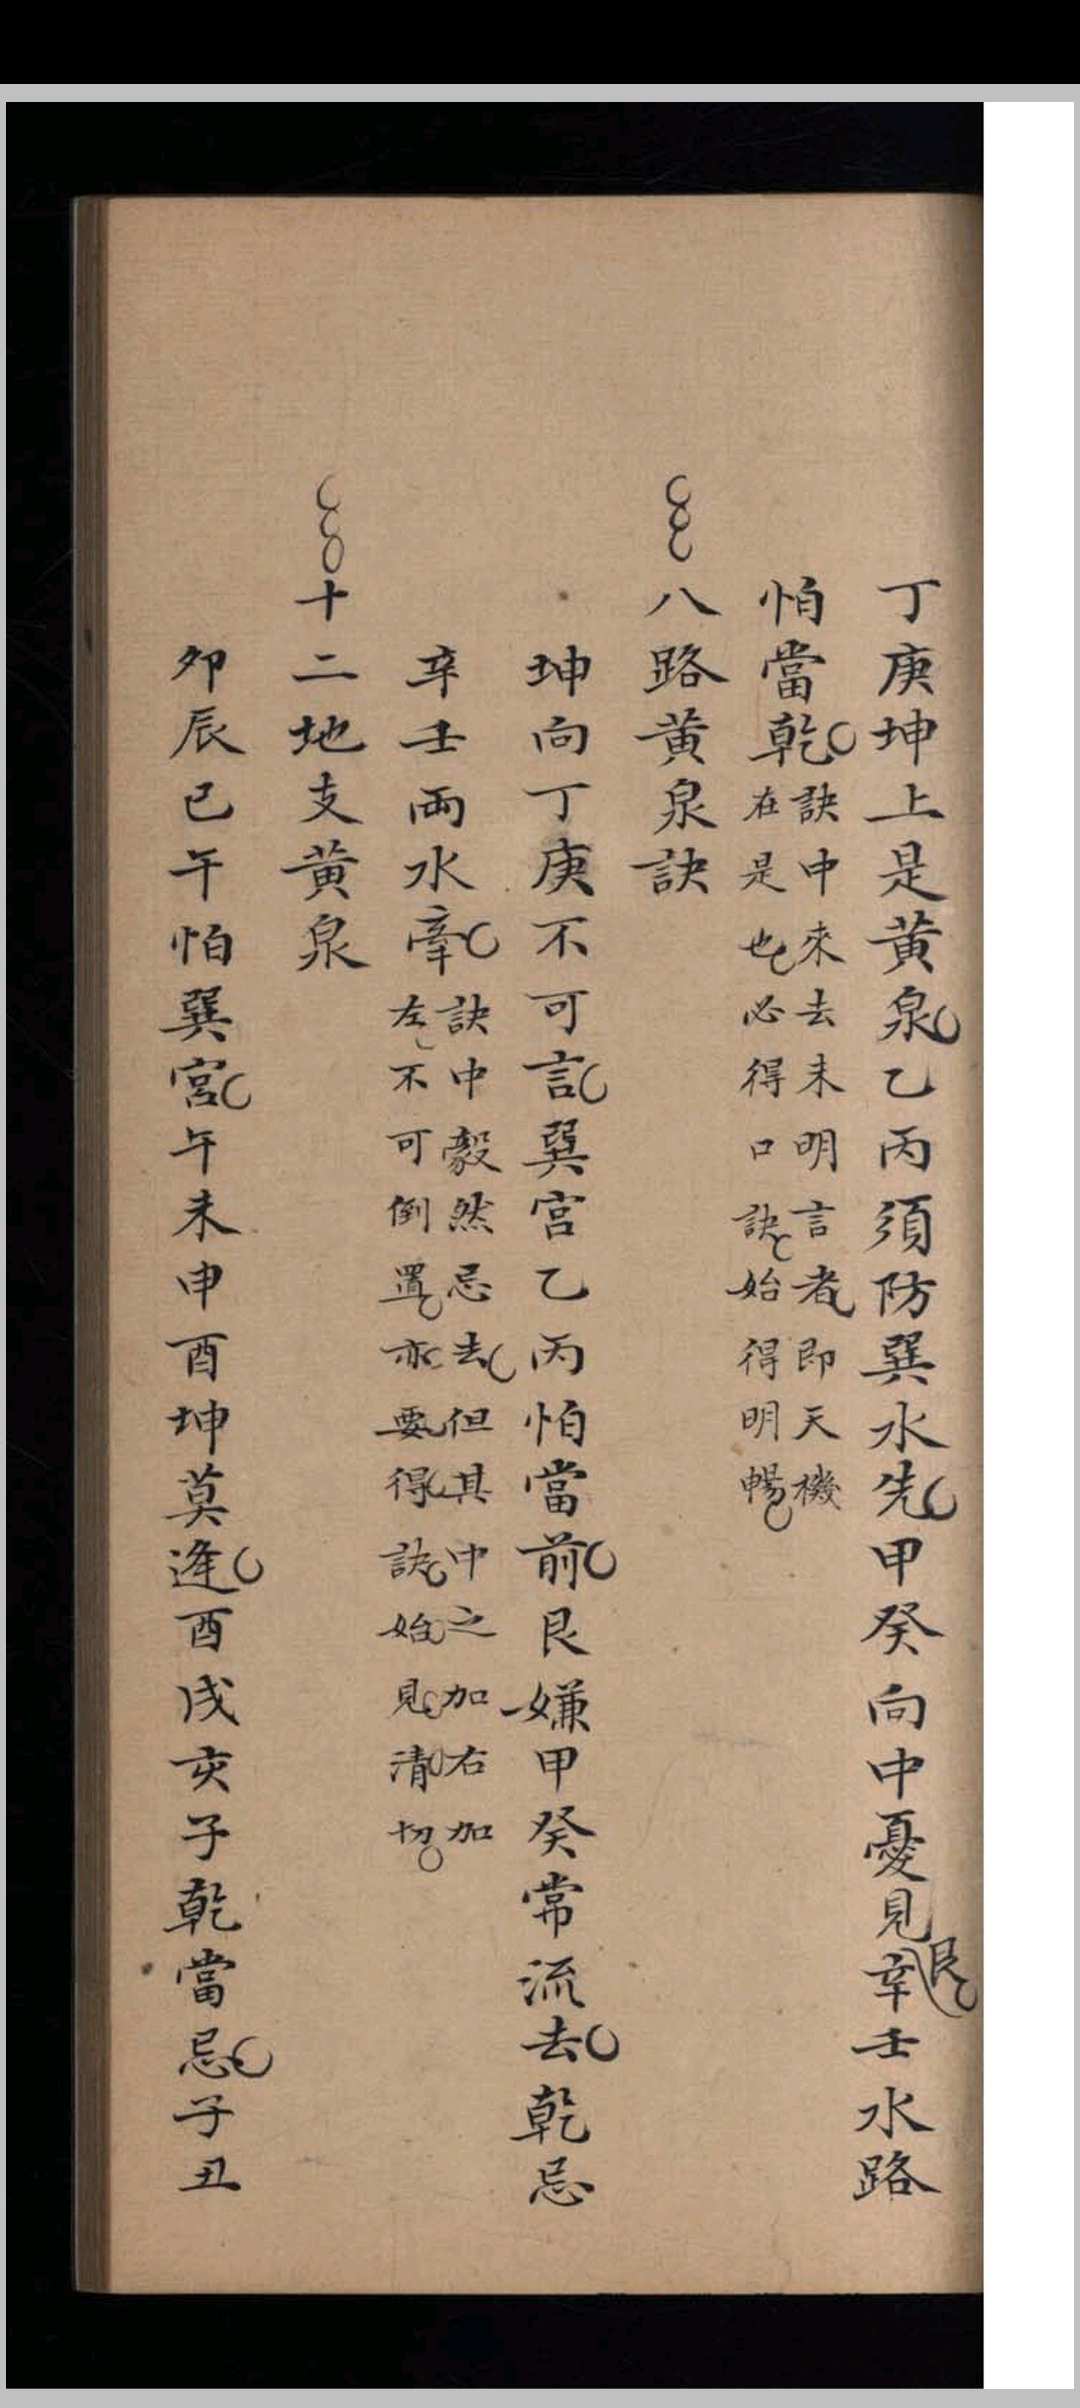 丁庚坤上是黄泉乙丙須防巽水先甲癸向中憂見艮辛壬水路
怕當乾訣中來去未明言者即天機
在是也必得口訣始得明暢
八路黄泉訣
坤向丁庚不可言巽宫乙丙怕當前艮嫌甲癸常流去乾忌
辛壬両水牽訣中毅然忌去但其中之加右加
左不可倒置亦要得訣始見清切
十二地支黄泉
卯辰巳午怕巽宮午未申酉坤莫逢酉戌亥子乾當忌子丑